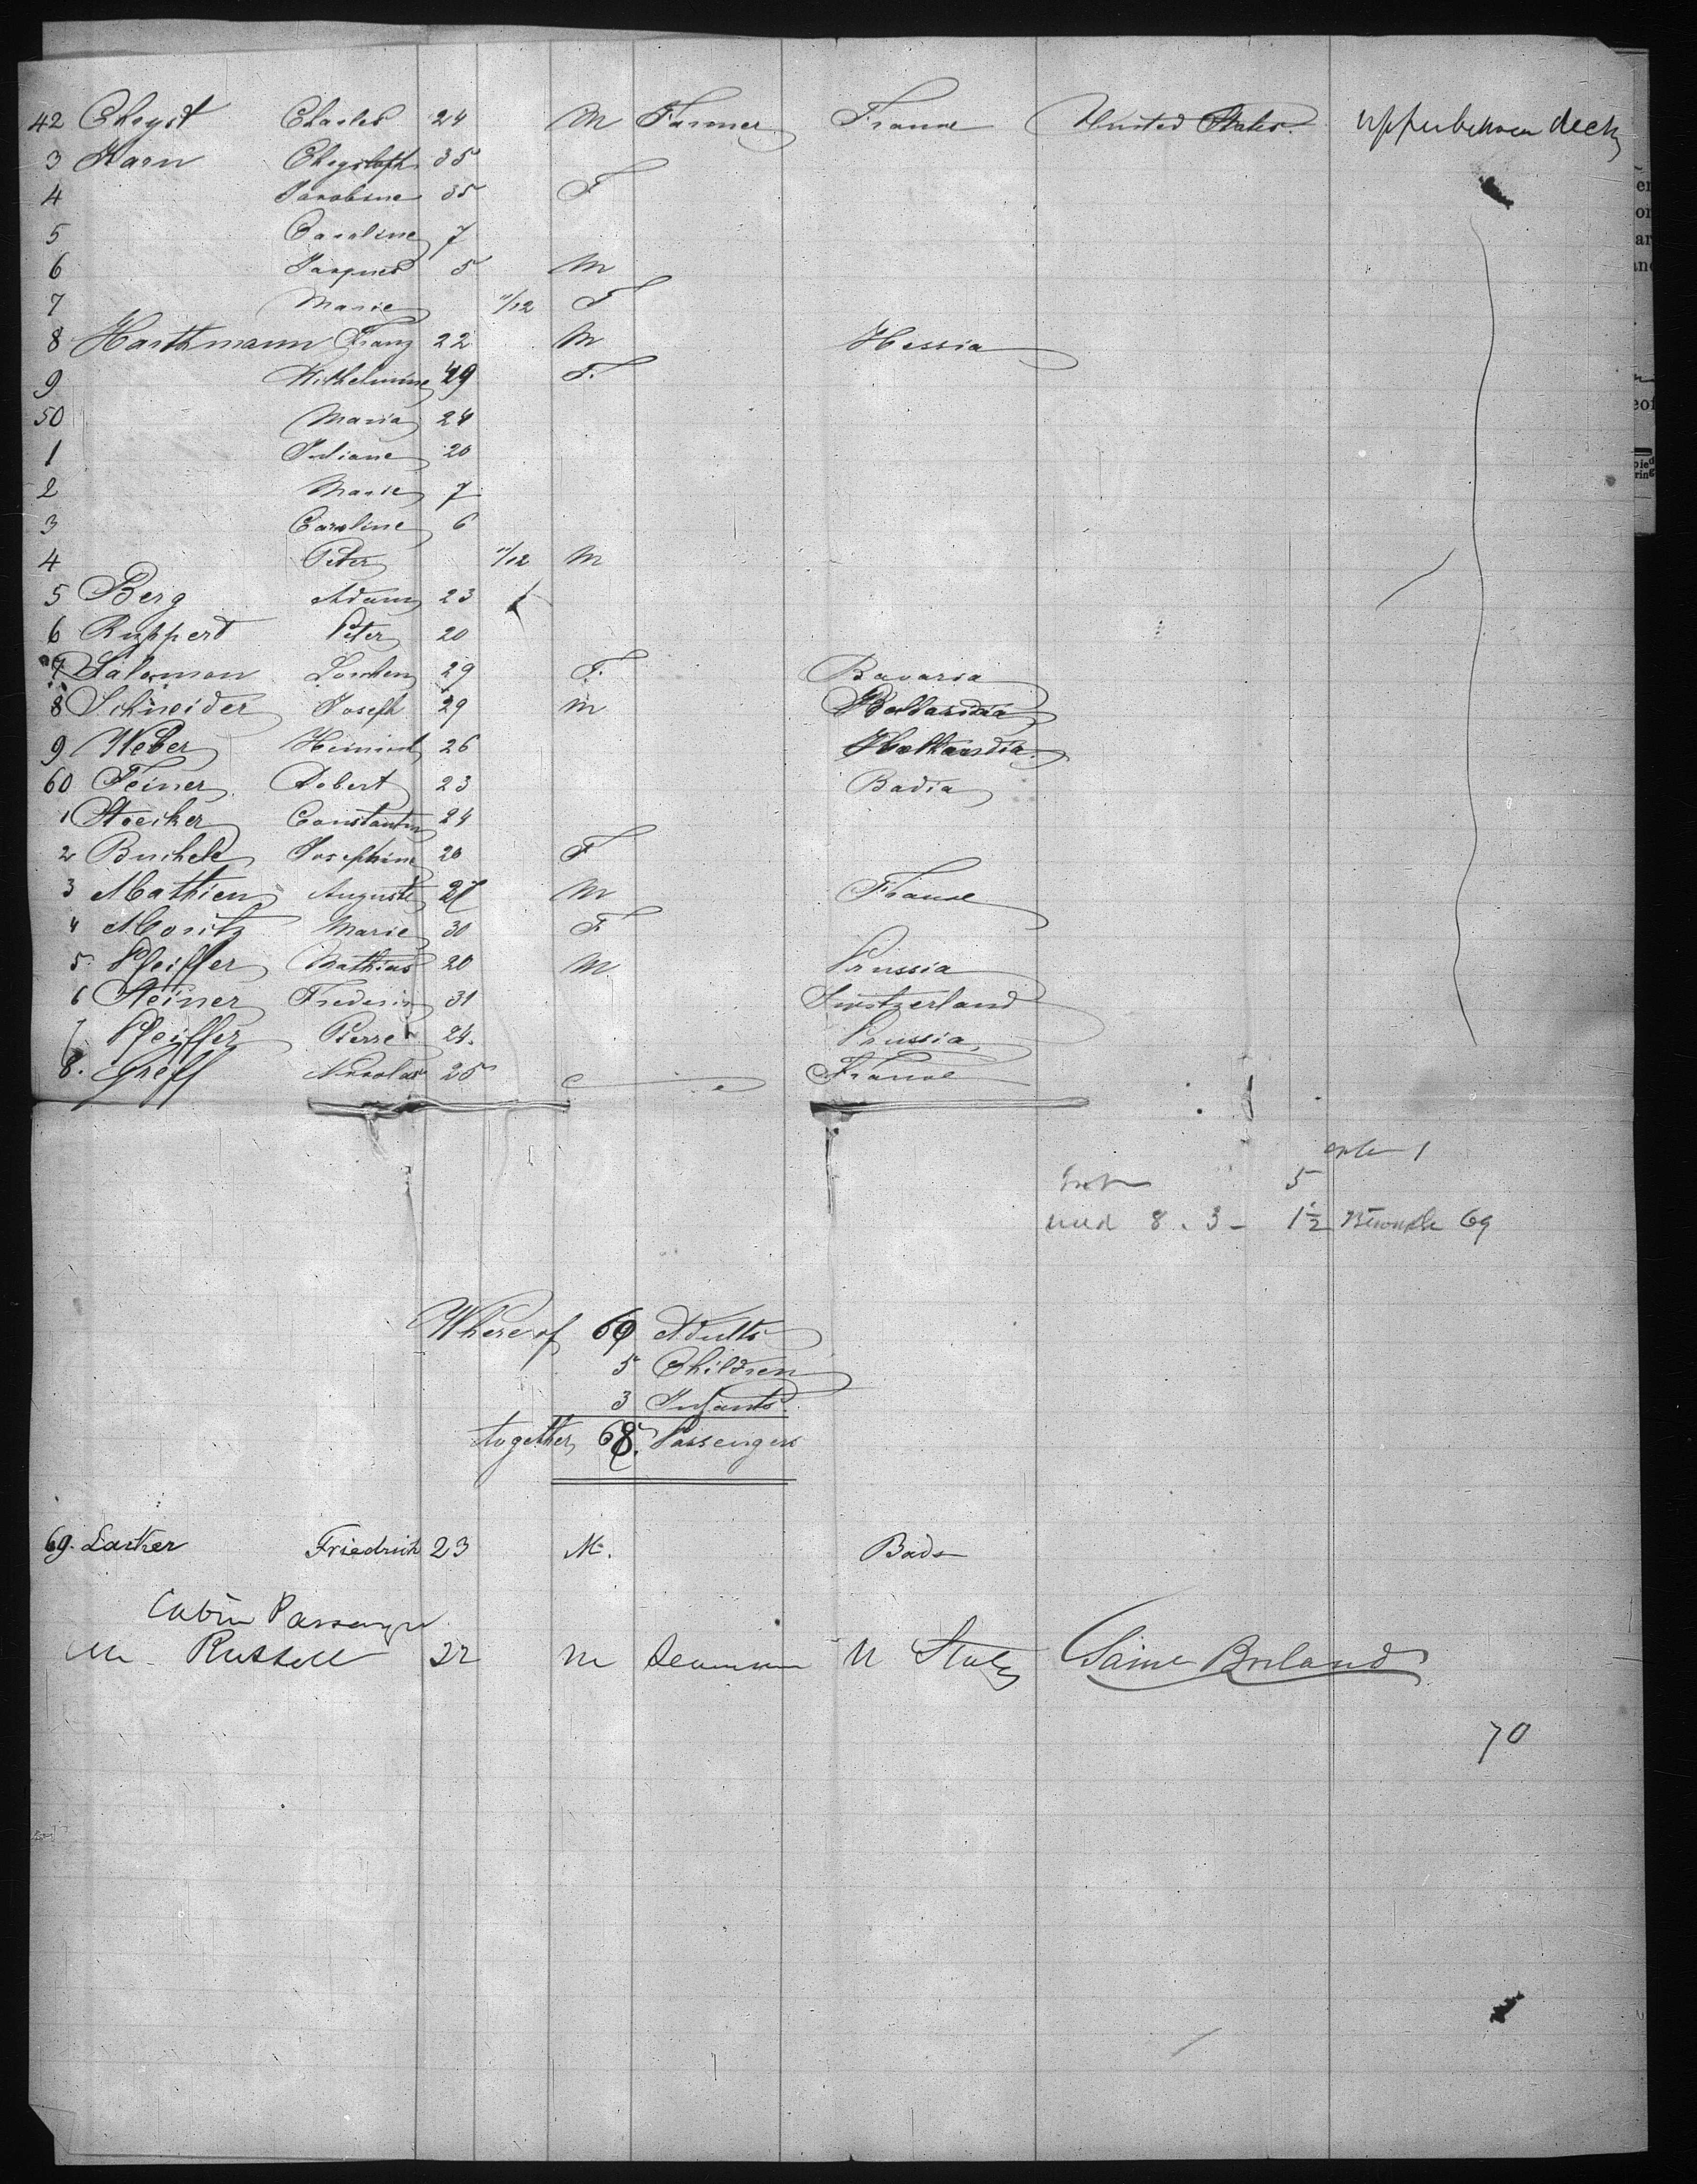 42 Chryst Charles 24 M Farmer France United States upperbetween deck
3 Karn Chrystoph 35
4 Jacobine 35 F
5 Caroline 7
6 Jacques 5 M
7 Marie 11/12 F
8 Harthmann Franz 22 M Hessia
9 Wilhelmine 49 F.
50 Maria 24
1 Juliane 20
2 Marie 7
3 Caroline 6
4 Peter 11/12 M
5 Berg Adam 23
6 Ruppert Peter 20
7 Salomon 29 F. Bavaria
8 Schneider Joseph 29 M
9 Weber Heinrich 26
60 Feiner 23 Badia
1 Stecker Constantin 24
2 Buchele Josephine 20 F
3 Mathieu Auguste 27 M France
4 Moritz Marie 30 F
5. Pfeiffer Mathias 20 M Prussia
6 Steiner Frederic 31 Switzerland
7 Pfeiffer Pierre 24. Prussia
8. Greff Nicolas 25 France
1
5
8. 3 - 1 1/2 69
Whereof 60 Adults
5 Children
3 Infants.
together 68. Passengers
69. Friedrich 23 M. Bade
Cabin Passenger
Russell 22 M U States
70